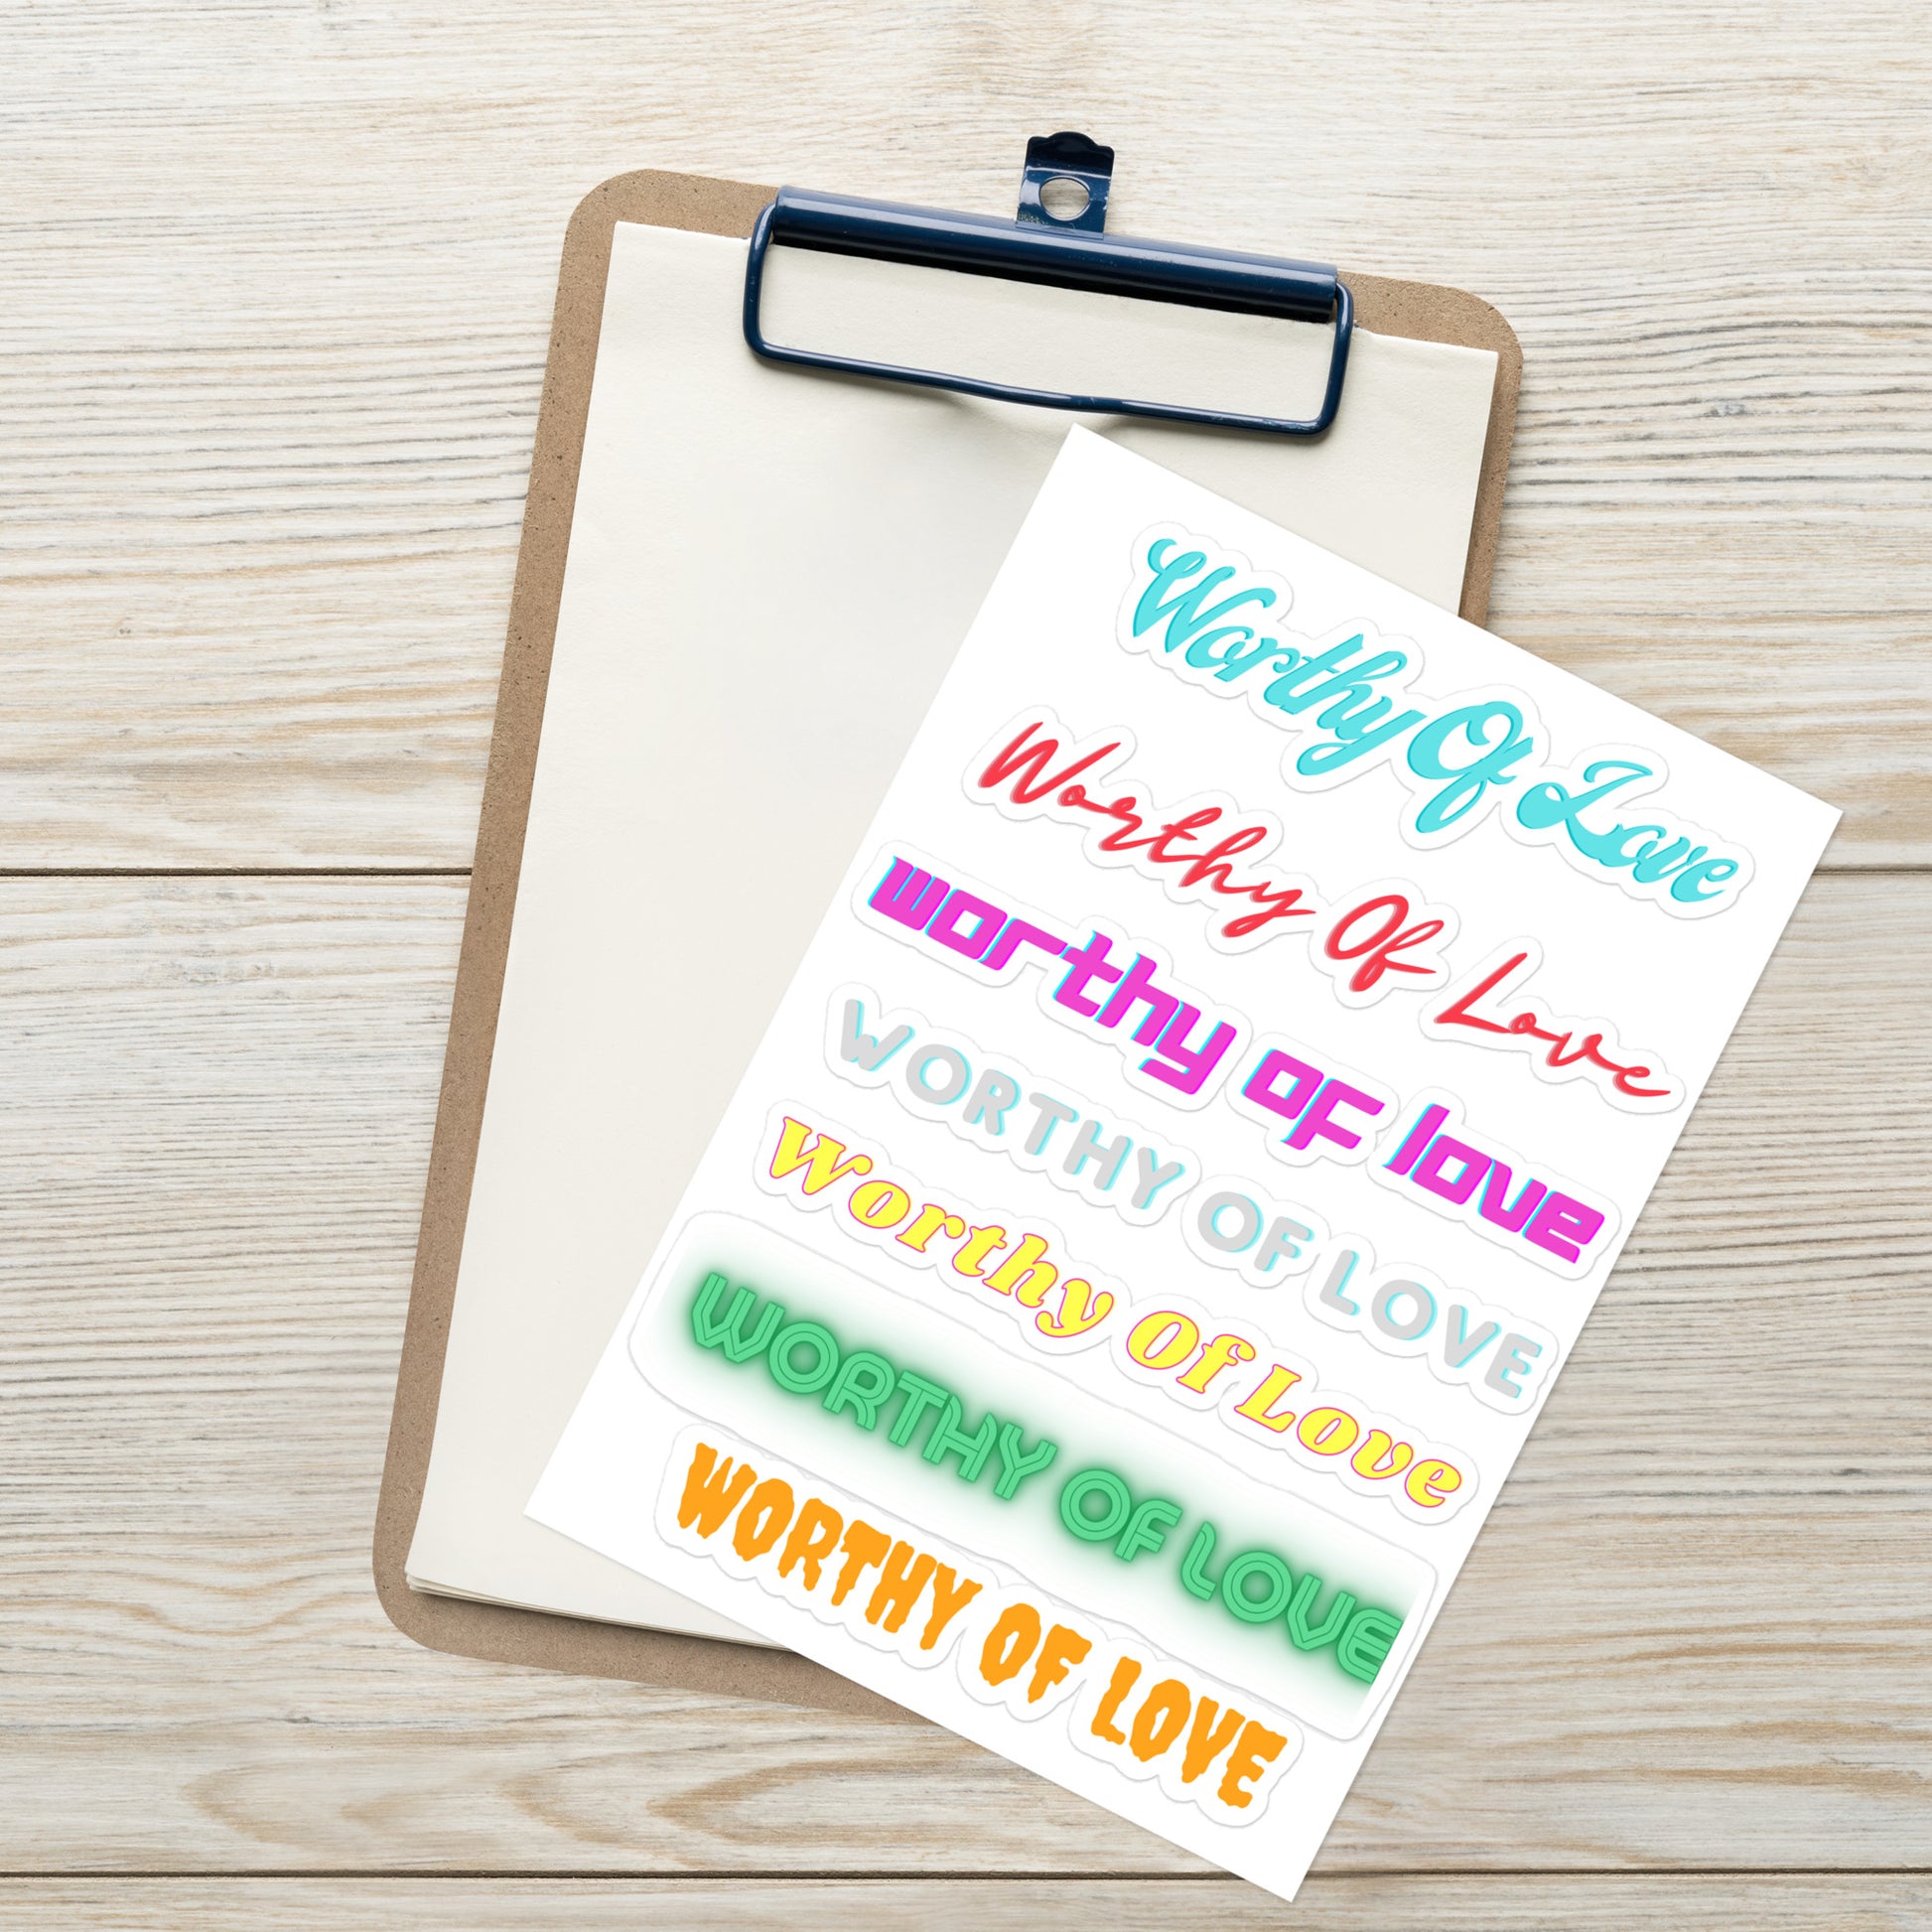 Worthy Of Love
Worthy Of Love
worthy of love
WORTHY OF LOVE
Worthy Of Love
WORTHY OF LOVE
WORTHY OF LOVE